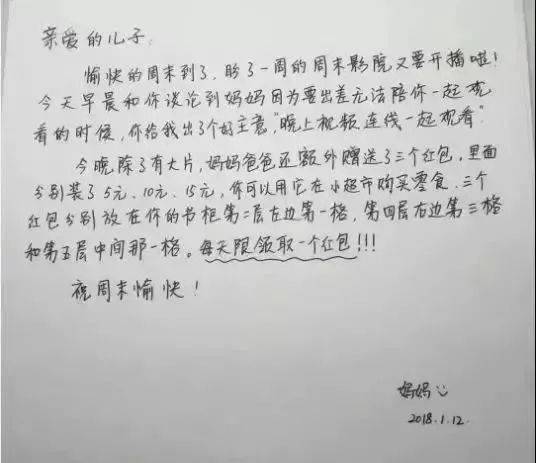 亲爱的儿子:
愉快的周末到了,盼了一周的周末影院又要开播啦!
今天早晨和你谈论到妈妈因为要出差无法陪你一起观
看的时候,你给我出了个好主意,“晚上视频连线一起观看”
今晚除了有大片,妈妈爸爸还额外赠送了三个红包,里面
分别装了5元、10元、15元,你可以用它在小超市购买零食.三个
红包分别放在你的书柜第二层左边第一格,第四层右边第三格
和第五层中间那一格。每天限领取一个红包!!!
祝周末愉快!
妈妈
2018.1.12.